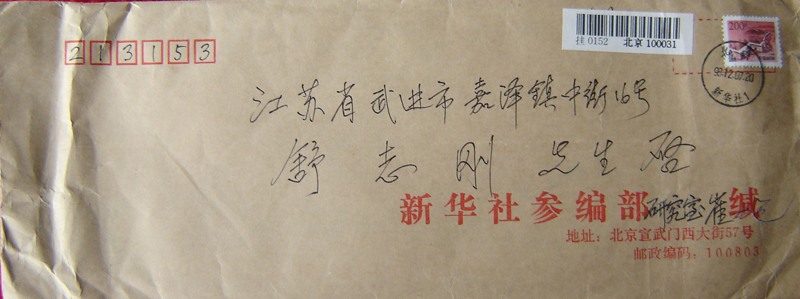 213153
挂 0152 北京 100031
200分
北京
98.12.07.20
新华社1
江苏省武进市嘉泽镇中街16号
舒志刚 先生 启
新华社参编部 研究室 崔 缄
地址：北京宣武门西大街57号
邮政编码：100803